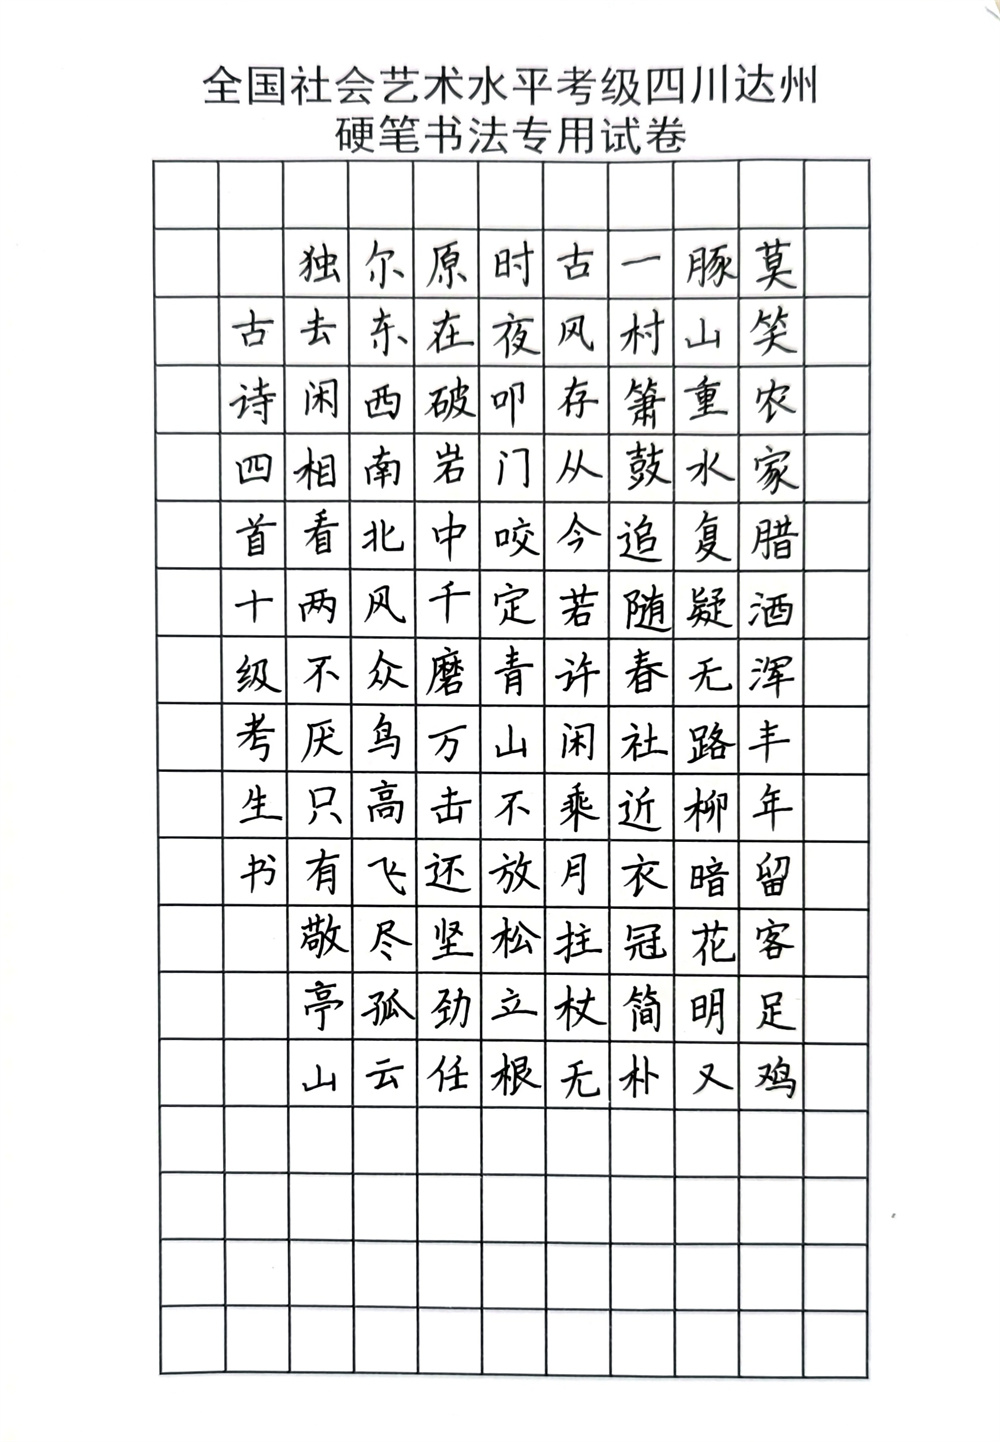 全国社会艺术水平考级四川达州
硬笔书法专用试卷
莫笑农家腊酒浑丰年留客足鸡
豚山重水复疑无路柳暗花明又
一村箫鼓追随春社近衣冠简朴
古风存从今若许闲乘月拄杖无
时夜叩门咬定青山不放松立根
原在破岩中千磨万击还坚劲任
尔东西南北风众鸟高飞尽孤云
独去闲相看两不厌只有敬亭山
古诗四首十级考生书